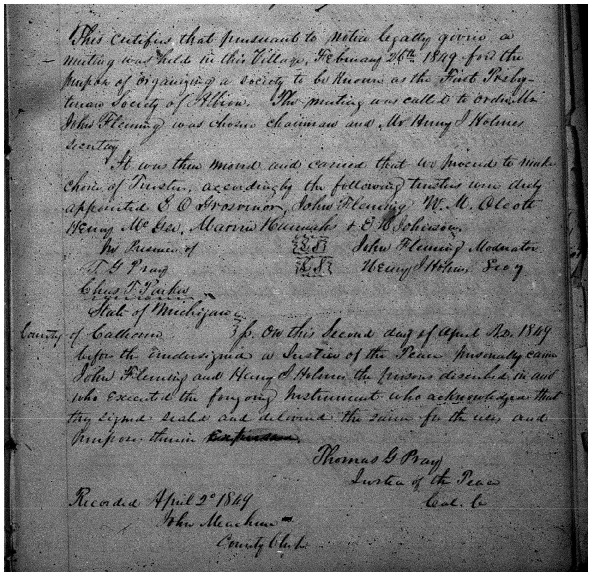 This certifies that pursuant to notice legally given a
meeting was held in this Village, February 26th 1849 for the
purpose of organizing a society to be known as the First Presby-
terian Society of Albion. The meeting was called to order Mr
John Fleming was chosen chairman and Mr Henry J Holmes
Secretary
It was then moved and carried that we proceed to make
choice of Trustees, accordingly the following trustees were duly
appointed E O Grosvenor, John Fleming W. M. Olcott
Henry McGee, Marvin Hannahs & E H Johnson,
In Presence of {L.S} John Fleming Moderator
T G Pray {L.S} Henry J Holmes Secy
Chas T Parker
State of Michigan
County of Calhoun } On this Second day of April A.D. 1849
before the undersigned a Justice of the Peace personally came
John Fleming and Henry J Holmes the persons described in and
who executed the foregoing Instrument who acknowledged that
they signed sealed and delivered the same for the uses and
purposes therein
Thomas G Pray
Justice of the Peace
Cal. Co
Recorded April 2d 1849
John Meachem
County Clerk